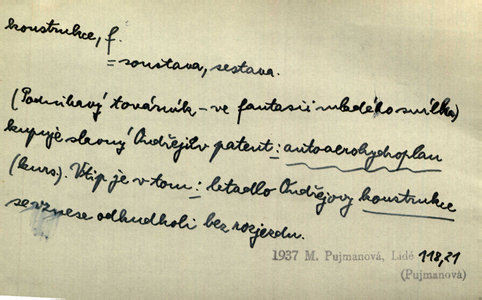 konstrukce, f.
= soustava, sestava.
(Podnikavý továrník – ve fantasii mladého snílka)
kupuje slavný Ondřejův patent: autoaerohydroplan
(kurs). Vtip je v tom: letadlo Ondřejovy konstrukce
se vznese odkudkoli bez rozjezdu.
1937 M. Pujmanová, Lidé 118,21
(Pujmanová)